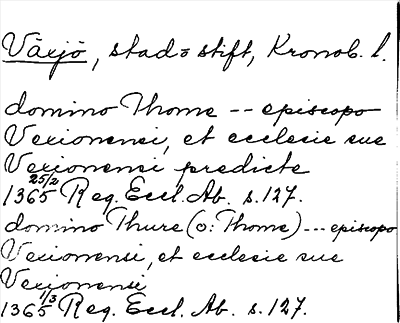 Växjö, stad o stift, Kronob. l.
domino Thome -- episcopo
Vexionensi, et ecclesie sue
Vexionensi predicte
25/2
1365 Reg. Eccl. Ab. s. 127.
domino Thure (o: Thome) --- episcopo
Vexionensi, et ecclesie sue
Vexionensi
1/3
1365 Reg. Eccl. Ab. s. 127.